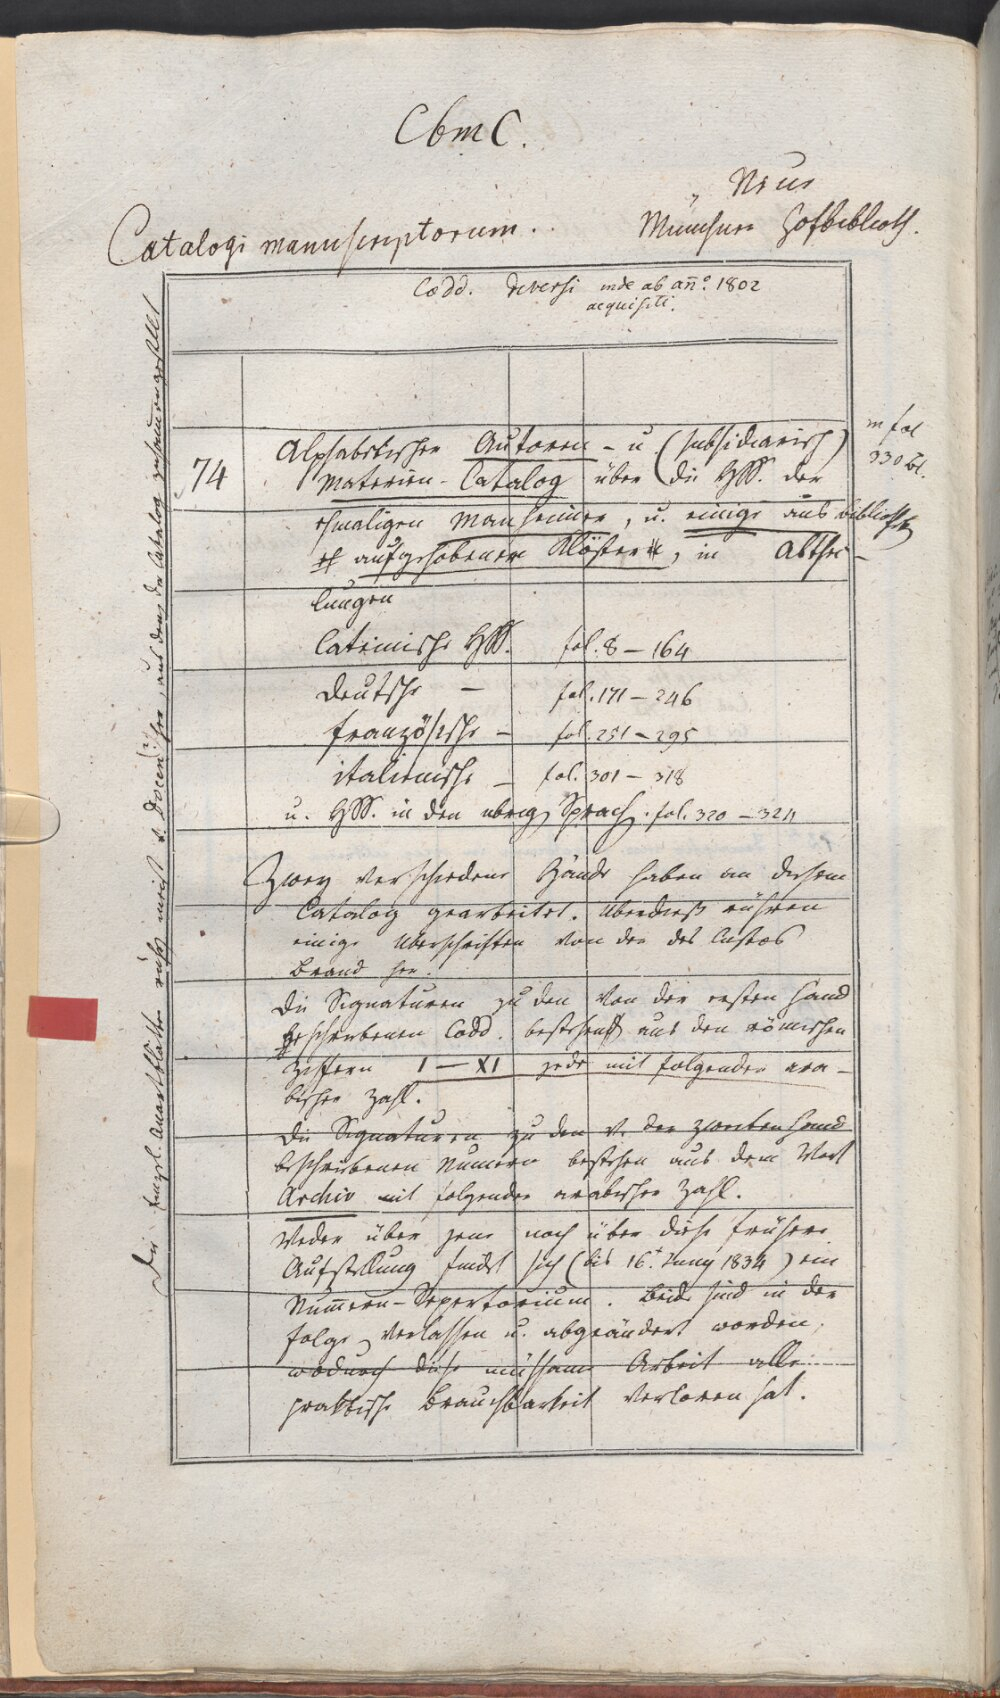 CbmC.
Neue
Catalogi manuscriptorum.
Münchner Hofbiblioth.
Codd. diversi inde ab añ.° 1802
acquisiti.
in fol
330 Bl.
74
Alphabetischer Autoren- u. (subsidiarisch)
Materien-Catalog über die HSS. der
ehmaligen Manheimer, u. einige aus Biblioth
aufgehobener Klöster, in Abthei-
lungen
lateinische HSS. fol. 8 – 164
deutsche – fol. 171 – 246
französische – fol. 251 – 295
italienische – fol. 301 – 318
u. HSS. in den übrig Sprach. fol. 320 – 324
Zwey verschiedene Hände haben an diesem
Catalog gearbeitet. Überdieß rühren
einige Überschriften von der des Custos
Brand her.
Die Signaturen zu den von der ersten Hand
beschriebenen Codd. bestehen aus den römischen
Ziffern I – XI jede mit folgender ara-
bischer Zahl.
Die Signaturen zu den v. der zweiten Hand
beschriebenen Numern bestehen aus dem Wort
Archiv mit folgender arabischer Zahl.
Weder über jene noch über diese frühere
Aufstellung findet sich (bis 16.t Juny 1834) ein
Num̄ern-Repertorium. Beide sind in der
Folge verlassen u. abgeändert worden,
wodurch diese mühsame Arbeit alle
praktische Brauchbarkeit verloren hat.
Die einzel. Quartblätter meist v. Docen(?) her, aus denen der Catalog zusam̄engestellt